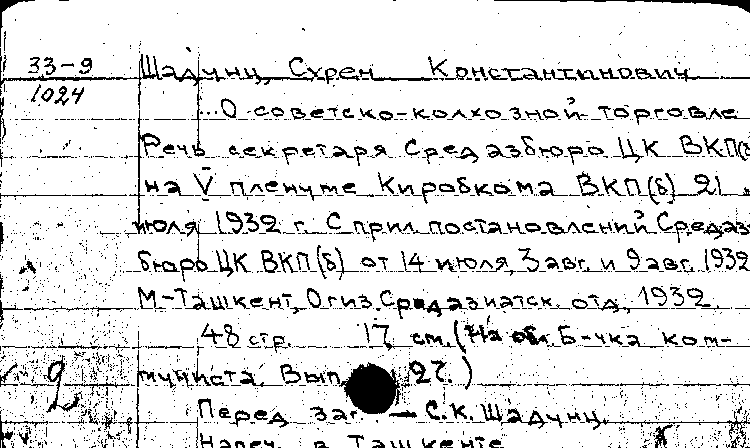 33-9
1024
Шадунц, Сурен Константинович
...О советско-колхозной торговле
Речь секретаря Средазбюро ЦК ВКП(б
на V пленуме Киробкома ВКП(б) 21
июля 1932 г. С прил. постановлений Средаз-
бюро ЦК ВКП(б) от 14 июля, 3 авг. и 9 авг. 1932
М-Ташкент, Огиз. Средазиатск. отд., 1932.
48 стр. 17 см. (На обл. Б-чка ком-
муниста. Вып. 27.)
2
Перед заг. — С.К. Шадунц.
Напеч. в Ташкенте